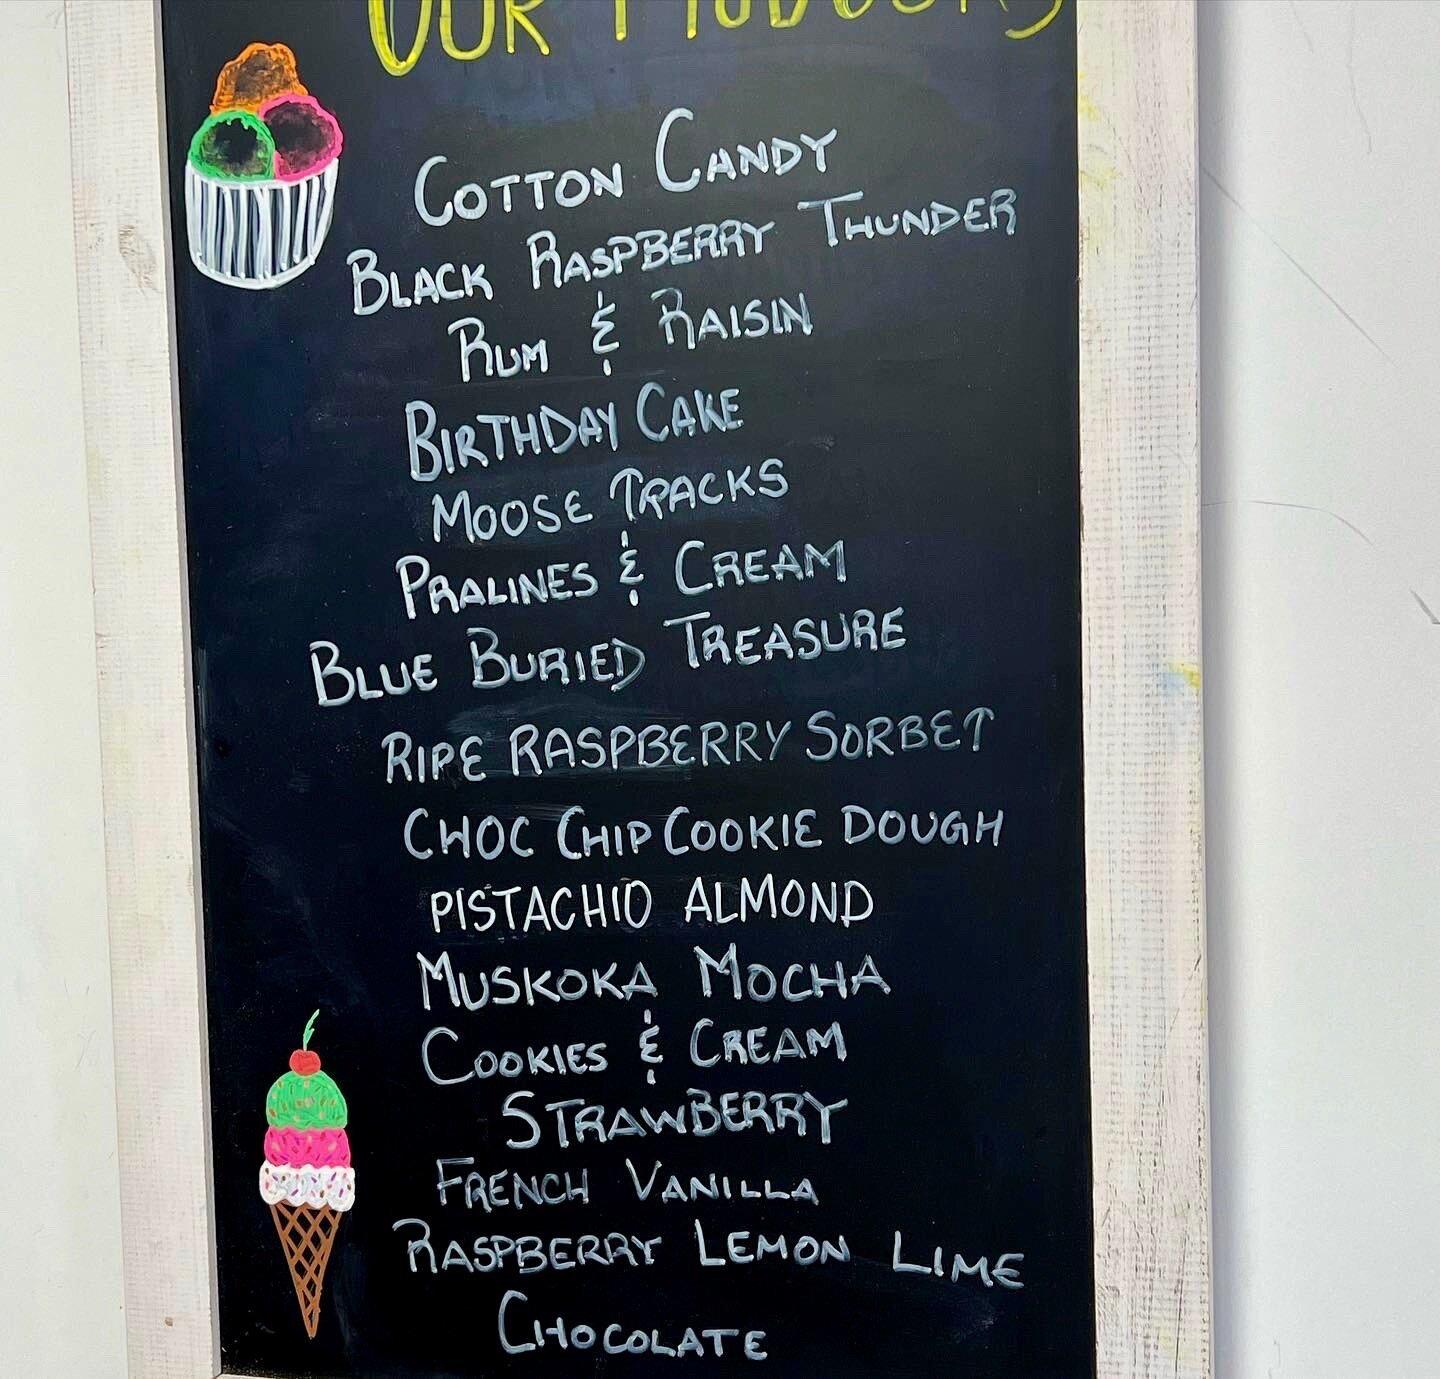 OUR
COTTON CANDY
BLACK RASPBERRY THUNDER
RUM & RAISIN
BIRTHDAY CAKE
MOOSE TRACKS
PRALINES & CREAM
BLUE BURIED TREASURE
RIPE RASPBERRY SORBET
CHOC CHIP COOKIE DOUGH
PISTACHIO ALMOND
MUSKOKA MOCHA
COOKIES & CREAM
STRAWBERRY
FRENCH VANILLA
RASPBERRY LEMON LIME
CHOCOLATE